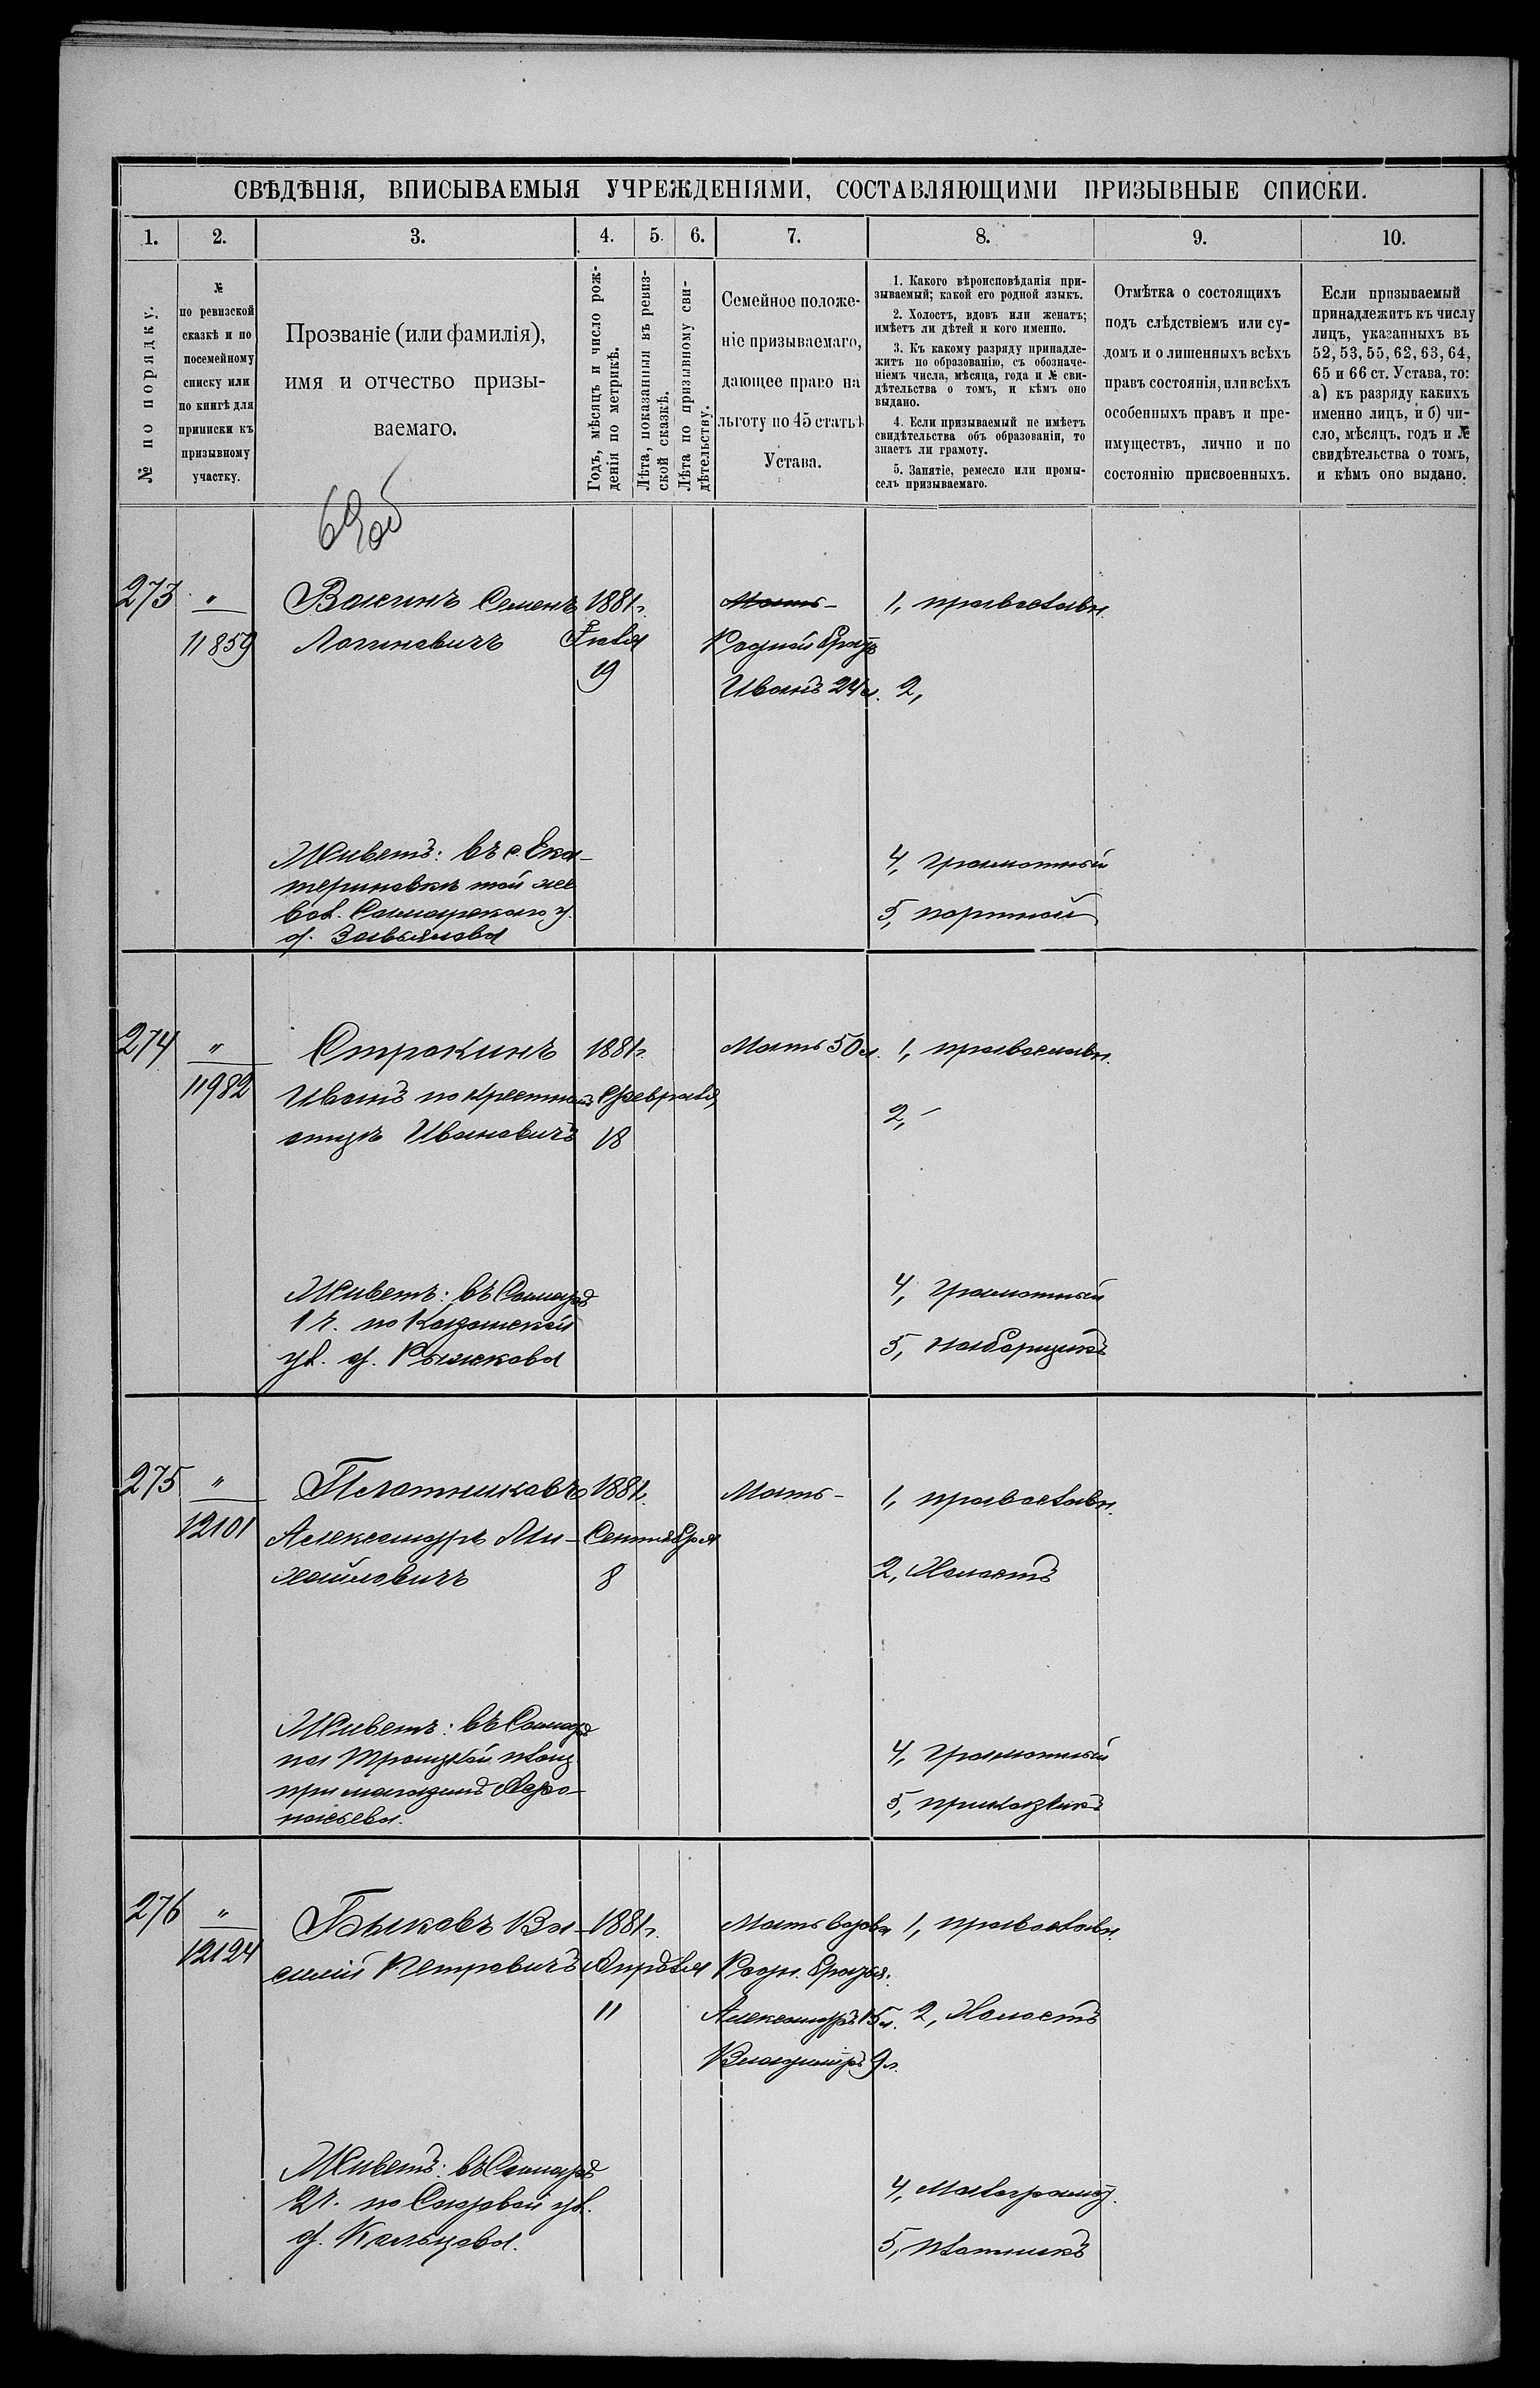 СВѢДѢНІЯ, ВПИСЫВАЕМЫЯ УЧРЕЖДЕНІЯМИ, СОСТАВЛЯЮЩИМИ ПРИЗЫВНЫЕ СПИСКИ.
1. 2. 3. 4. 5. 6. 7. 8. 9. 10.
№ по порядку.
№
по ревизской
сказкѣ и по
посемейному
списку или
по книгѣ для
приписки къ
призывному
участку.
Прозваніе (или фамилія),
имя и отчество призы-
ваемаго.
Годъ, мѣсяцъ и число рож-
денія по метрикѣ.
Лѣта, показанныя въ ревиз-
ской сказкѣ.
Лѣта по призывному сви-
дѣтельству.
Семейное положе-
ніе призываемаго,
дающее право на
льготу по 45 статьѣ
Устава.
1. Какого вѣроисповѣданія при-
зываемый; какой его родной языкъ.
2. Холостъ, вдовъ или женатъ;
имѣетъ ли дѣтей и кого именно.
3. Къ какому разряду принадле-
житъ по образованію, съ обозначе-
ніемъ числа, мѣсяца, года и № сви-
дѣтельства о томъ, и кѣмъ оно
выдано.
4. Если призываемый не имѣетъ
свидѣтельства объ образованіи, то
знаетъ ли грамоту.
5. Занятіе, ремесло или промы-
селъ призываемаго.
Отмѣтка о состоящихъ
подъ слѣдствіемъ или су-
домъ и о лишенныхъ всѣхъ
правъ состоянія, или всѣхъ
особенныхъ правъ и пре-
имуществъ, лично и по
состоянію присвоенныхъ.
Если призываемый
принадлежитъ къ числу
лицъ, указанныхъ въ
52, 53, 55, 62, 63, 64,
65 и 66 ст. Устава, то:
а) къ разряду какихъ
именно лицъ, и б) чи-
сло, мѣсяцъ, годъ и №
свидѣтельства о томъ,
и кѣмъ оно выдано.
69об
273 " Семенъ 1881г. Мать- 1, православн.
11859 Логиновичъ Іюля Родной братъ
19 Иванъ 24 л. 2,
Живетъ: въ с. Ека-
териновкѣ той же
вол. Самарскаго у.
д. Завьялова
4, грамотный
5, портной
274 " Строкинъ 1881г. Мать 50л. 1, православн.
11982 Иванъ по крестному Февраля
отцу Ивановичъ 18
2, -
Живетъ: въ Самарѣ
1 ч. по Казанской
ул. д. Рыжкова
4, грамотный
5, наборщикъ
275 " Плотниковъ 1881г. Мать- 1, православн.
12101 Александръ Ми- Сентября
хайловичъ 8
2, Холостъ
Живетъ: въ Самарѣ
на Троицкой площ.
при магазинѣ Афа-
насьева.
4, грамотный
5, приказчикъ
276 " Быковъ Ва- 1881г. Мать вдова 1, православн.
12124 силій Петровичъ Апрѣля Родн. братья:
11 Александръ 15л. 2, Холостъ
Владиміръ 9л.
Живетъ: въ Самарѣ
2ч. по Садовой ул.
д. Кальцева.
4, Малограмот.
5, плотникъ